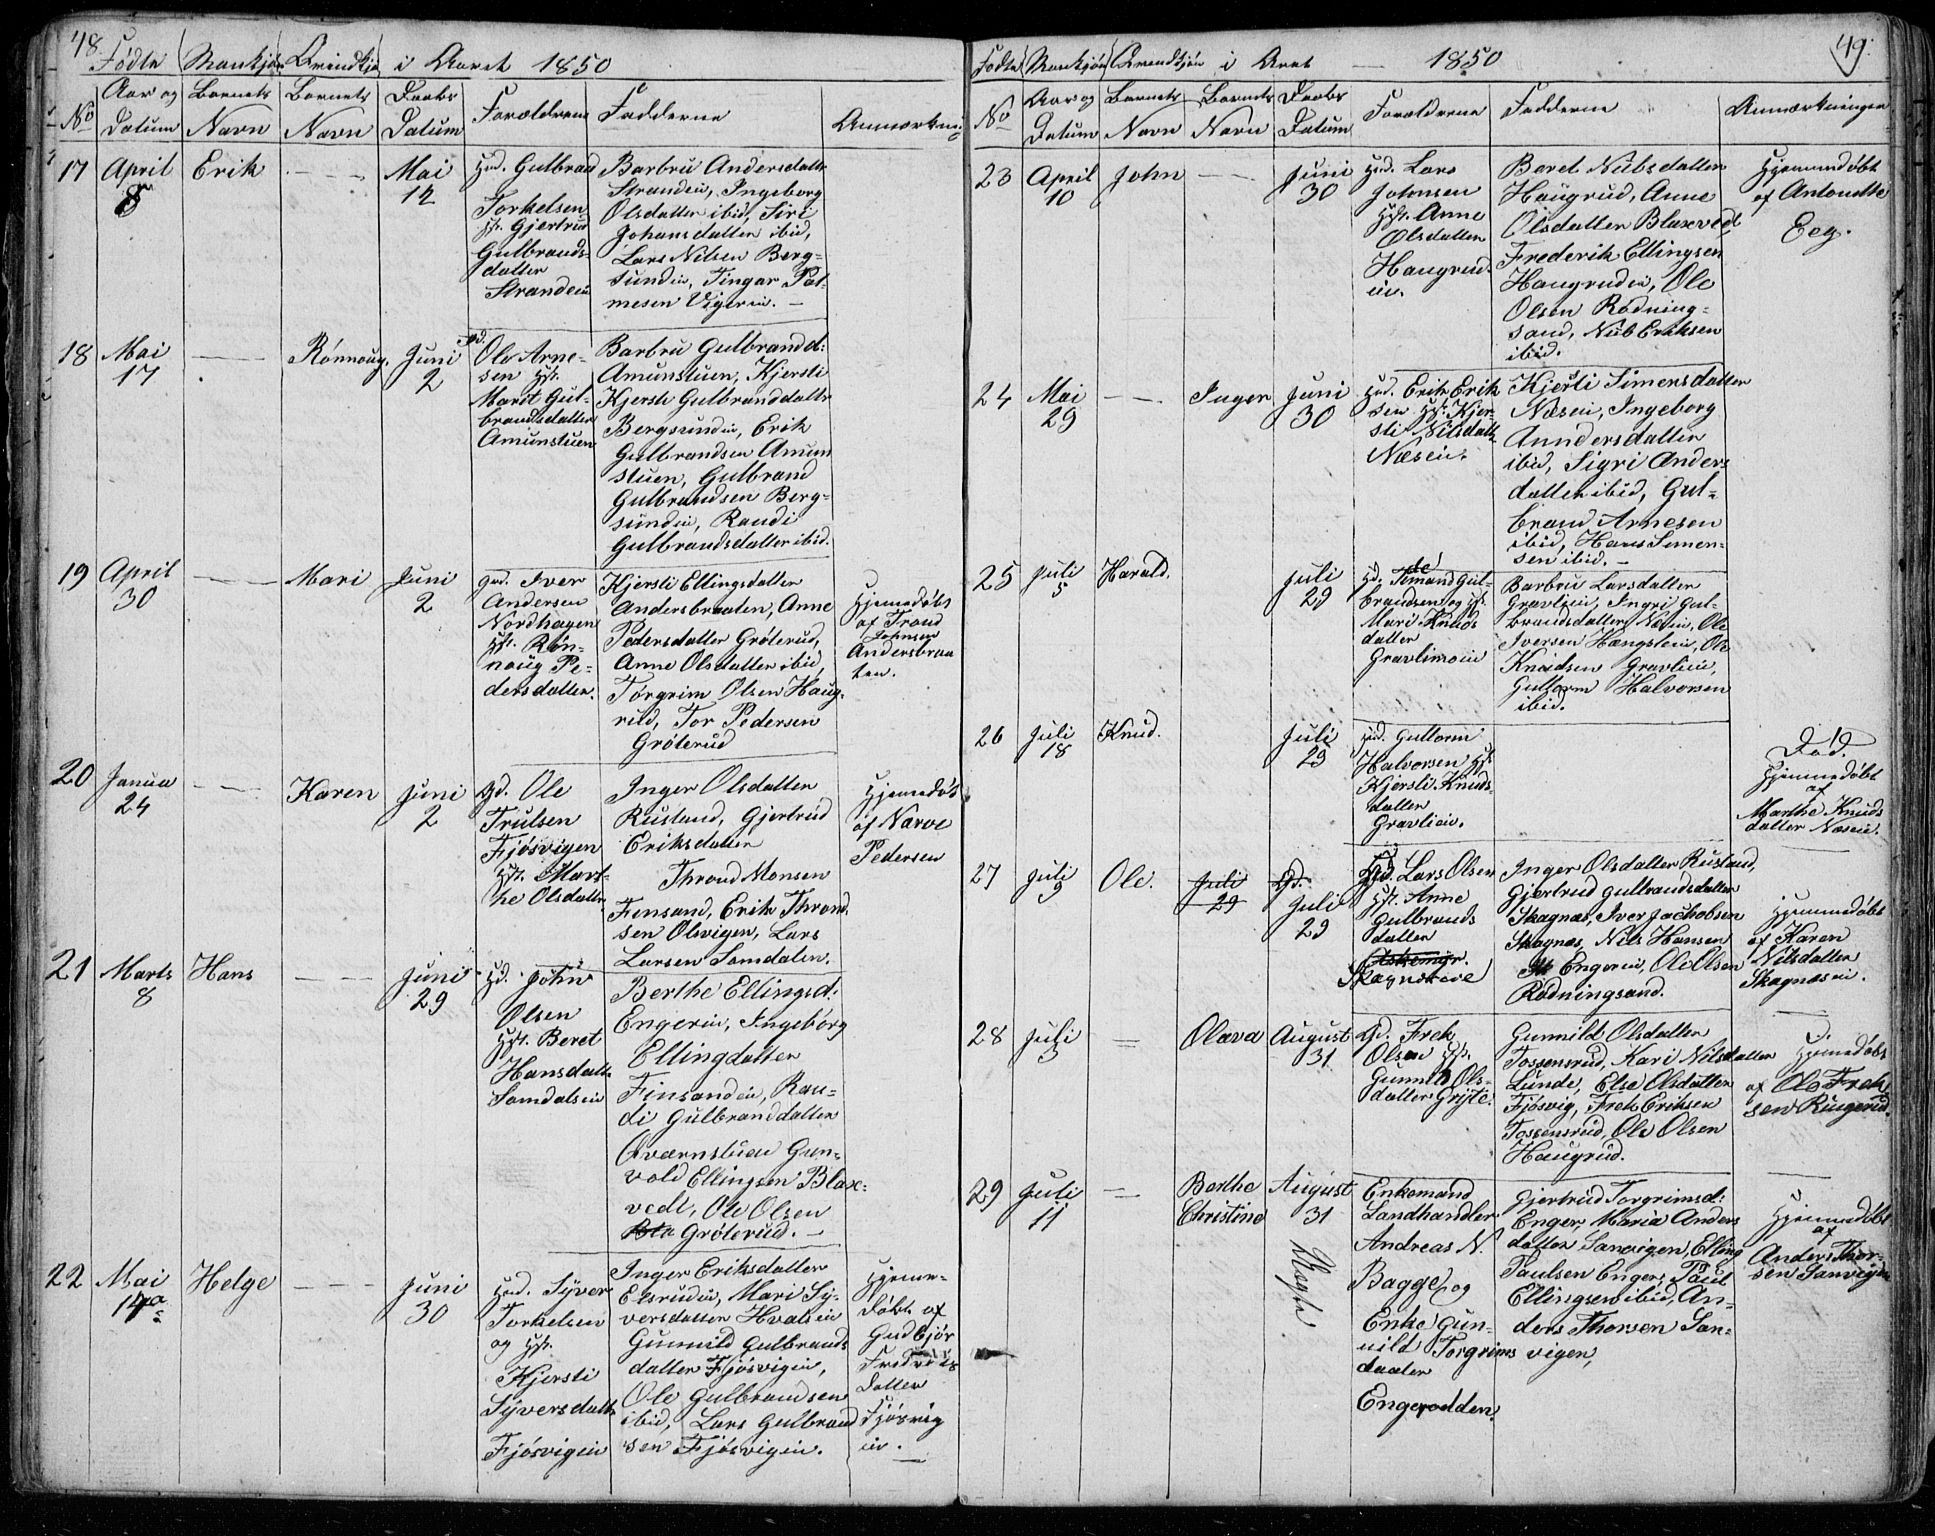 48.
Fødte Mankjøn Qvindkjø i Aaret 1850
No
Aar og Datum
Barnets Navn
Barnets Navn
Daabs Datum
Forældrene
Fadderne
Anmærkni
17
April
8
Erik
Mai
12
Hsd. Gulbrand
Torkelsen
Hst. Gjertrud
Gulbrands-
datter
Strandeie
Barbru Andersdatte
Strandeie, Ingeborg
Olsdatter ibid, Siri
Johansdatter ibid,
Lars Nilsen Berg-
sundeie, Tingar Pal-
mesen Vigerie. —
18
Mai
17
Rønnoug,
Juni
2
Ole Arne-
sen Hst.
Marit Gul-
brandsdatter
Amunstuen
Barbru Gulbrandd:
Amunstuen, Kjersti
Kjersti Gulbranddatte
Bergsundeie, Erik
Gulbrandsen Amun
stuen, Gulbrand
Gulbrandsen Berg-
sundeie, Randi
Gulbrandsdatter ibid.
19
April
30
Mari
Juni
2
Gd. Iver
Andersen
Nordhagen
Hst. Røn-
naug Pe-
dersdatter.
Kjersti Ellingsdatter
Andersbraaten, Anne
Pedersdatter Grøterud,
Anne Olsdatter ibid,
Torgrim Olsen Haug-
rud, Tor Pedersen
Grøterud
Hjemedøbt
af Trond
Johnsen
Andersbraa
ten.
20
Janua
24
Karen
Juni
2
Gd. Ole
Trulsen
Fjøsvigen
Hst. Mart-
he Olsdatter
Inger Olsdatter
Rustand, Gjertrud
Eriksdatter
Thrond Monsen
Fensand, Erik Thrond
sen Olsvigen, Lars
Larsen Samdalen.
Hjemedøbt
af Narve
Pedersen
21
Marts
8
Hans
Juni
29
Hd. John
Olsen
Hst. Beret
Hansdatte
Samdalseie
Berthe Ellingsd:
Engerie, Ingeborg
Ellingdatter
Finsandeie, Ran-
di Gulbranddatter
Qværnstuen Gun-
vold Ellingsen Blaxe-
vedt, Ole Olsen
Bla Grøterud. —
22
Mai
14
Helge
Juni
30
Hsd. Syver
Torkelsen
og Hst.
Kjersti
Syversdatte
Fjøsvigeie
Inger Eriksdatter
Elsrudeie, Mari Sy-
versdatter Hvalseie
Gunnild Gulbrands
datter Fjøsvigeie,
Ole Gulbrandsen
ibid, Lars Gulbrand
sen Fjøsvigeie.
Hjeme-
døbt af
Gudbjør
Fredriks
datter
Fjøsvig
eie.
49.
Fødte Mankjøn Qvendkjøn i Aret — 1850
No
Aar og Datum
Barnets Navn
Barnets Navn
Daabs Datum
Forælderne
Fadderne
Anmærkninger
23
April
10
John
Juni
30
Hsd. Lars
Johnsen
Hst. Anne
Olsdatter
Haugrud-
eie.
Beret Nilsdatter
Haugrud, Anne
Olsdatter Blaxevedt
Frederik Ellingsen
Haugrudeie, Ole
Olsen Rødning-
sand, Nils Eriksen
ibid.
Hjemmedøbt
af Antonette
Eeg.
24
Mai
29
Inger
Juni
30
Hsd. Erik Erik
sen Hst. Kjer-
sti Nilsdatte
Næseie.
Kjersti Simensdatter
Næseie, Ingeborg
Anndersdatter
ibid, Sigri Anders
datter ibid, Gul-
brand Arnesen
ibid, Hans Simen-
sen ibid. —
25
Juli
5
Harald.
Juli
29
brandsen og Hst.
Mari Knuds
datter
Gravlimoeie
Barbru Larsdatter
Gravlieie, Ingri Gul-
brandsdatter Næseie, Ole
Iversen Hængsleeie, Ole
Knudsen Gravlieie,
Guttorm Halvorsen
ibid.
26
Juli
18
Knud.
Juli
29
Hsd. Guttorm
Halvorsen Hst.
Kjersti Knuds-
datter
Gravlieie.
Død.
Hjemmedøbt
af
Marthe Knuds
datter Næseie.
27
Juli
9
Ole.
Juli
29
Gd.
Juli
29
Hsd. Lars Olsen
Hst. Anne
Gulbrands
datter
Skagnæseie
Inger Olsdatter Rustand,
Gjertrud Gulbrandsdatter
Skagnæs, Iver Jachobsen
Skagnæs, Nils Hansen
Engereie, Ole Olsen
Rødningsand.
Hjemmedøbt
af Karen
Nilsdatter
Skagnæseie.
28
Juli
3
Olava
August
31
Gd. Frek
Olsen Hst.
Gunnild Ols-
datter Grøte.
Gunnild Olsdatter
Tossensrud, Kari Nilsdatter
Lunde, Else Olsdatter
Fjøsvig, Frek Eriksen
Tossensrud, Ole Olsen
Haugrud.
Hjemedøbt
af Ole Frek
sen Ringerud.
29
Juli
11
Berthe
Christine
August
31
Enkemand
Landhandler
Andreas N.
Bagge og
Enke Gun-
nild Torgrims
daater
Engerodden.
Gjertrud Torgrimsd:
Enger, Maria Anders
datter Sanvigen, Elling
Paulsen Enger, Paul
Ellingsen ibid, An-
ders Thorsen San-
vigen,
Hjemmedøbt
af
Anders Thor-
sen Sanvigen